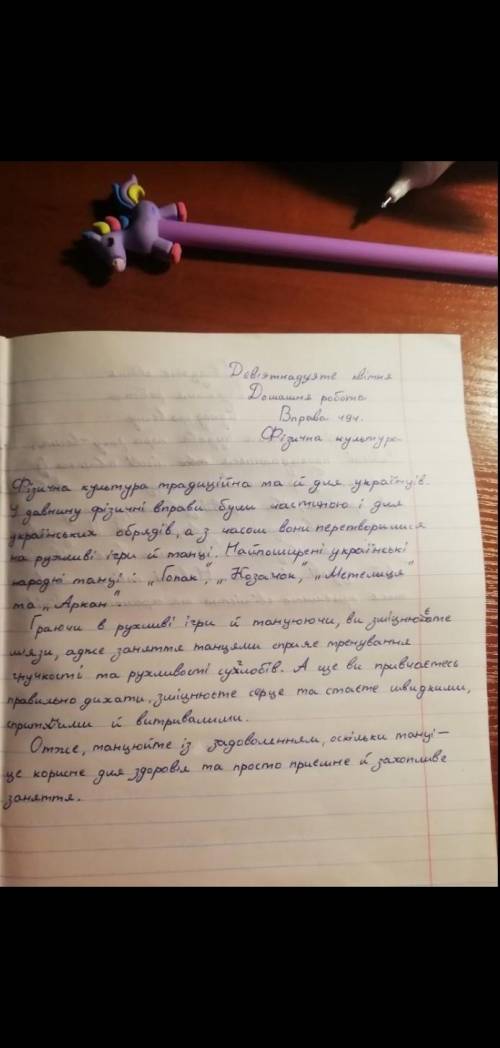 Дев'ятнадцяте квітня
Домашня робота
Вправа 494.
Фізична культура
Фізична культура традиційна та й для українців.
У давнину фізичні вправи були частиною і для
українських обрядів, а з часом вони перетворилися
на рухливі ігри й танці. Найпоширені українські
народні танці: „Гопак", „Козачок", „Метелиця"
та „Аркан".
Граючи в рухливі ігри й танцюючи, ви зміцнюєте
м'язи, адже заняття танцями сприяє тренування
гнучкості та рухливості суглобів. А ще ви привчаєтесь
правильно дихати, зміцнюєте серце та стаєте швидкими,
спритними й витривалими.
Отже, танцюйте із задоволенням, оскільки танці –
це корисне для здоров'я та просто приємне й захопливе
заняття.